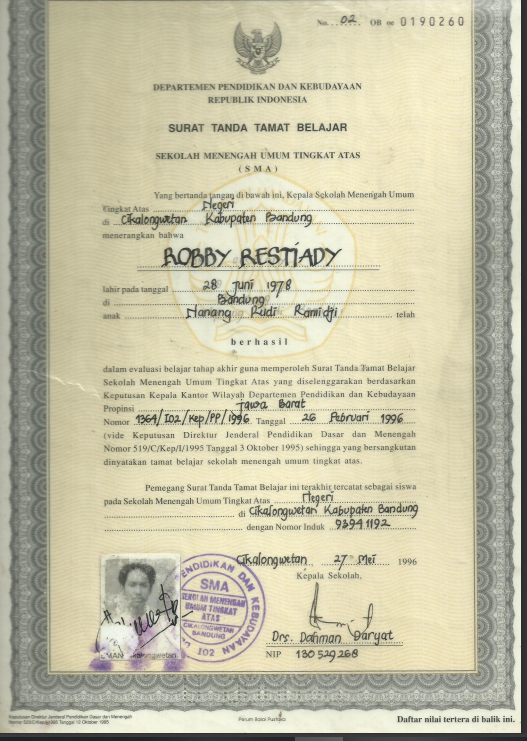 No. 02 OB oe 0190260
DEPARTEMEN PENDIDIKAN DAN KEBUDAYAAN
REPUBLIK INDONESIA
SURAT TANDA TAMAT BELAJAR
SEKOLAH MENENGAH UMUM TINGKAT ATAS
( S M A )
Yang bertanda tangan di bawah ini, Kepala Sekolah Menengah Umum
Tingkat Atas Negeri
di Cikalongwetan Kabupaten Bandung
menerangkan bahwa
ROBBY RESTIADY
lahir pada tanggal 28 Juni 1978
di Bandung
anak Nanang Rudi Ramidji telah
berhasil
dalam evaluasi belajar tahap akhir guna memperoleh Surat Tanda Tamat Belajar
Sekolah Menengah Umum Tingkat Atas yang diselenggarakan berdasarkan
Keputusan Kepala Kantor Wilayah Departemen Pendidikan dan Kebudayaan
Propinsi Jawa Barat
Nomor 1364/I02/Kep/PP/1996 Tanggal 26 Pebruari 1996
(vide Keputusan Direktur Jenderal Pendidikan Dasar dan Menengah
Nomor 519/C/Kep/I/1995 Tanggal 3 Oktober 1995) sehingga yang bersangkutan
dinyatakan tamat belajar sekolah menengah umum tingkat atas.
Pemegang Surat Tanda Tamat Belajar ini terakhir tercatat sebagai siswa
pada Sekolah Menengah Umum Tingkat Atas Negeri
di Cikalongwetan Kabupaten Bandung
dengan Nomor Induk 93941192
Cikalongwetan, 27 Mei 1996
Kepala Sekolah,
PENDIDIKAN DAN KEBUDAYAAN
SMA
SEKOLAH MENENGAH
UMUM TINGKAT
ATAS
CIKALONGWETAN
BANDUNG
I02
Drs. Dahman Daryat
NIP 130529268
Keputusan Direktur Jenderal Pendidikan Dasar dan Menengah
Tanggal 12 Oktober 1995
Perum Balai Pustaka
Daftar nilai tertera di balik ini.